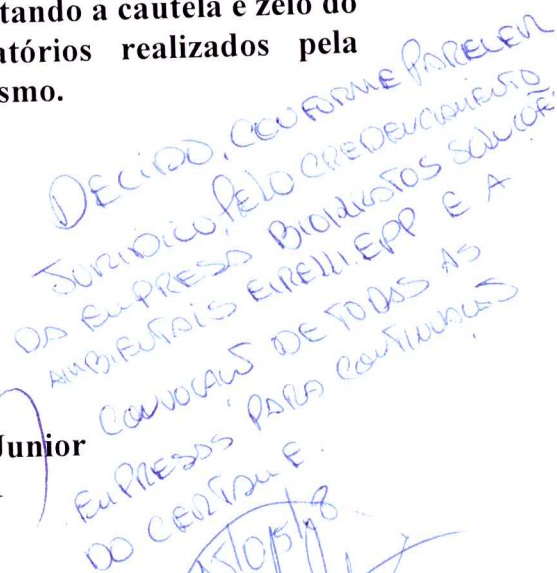 tando a cautela e zelo do
atórios realizados pela
smo.
DECIDO, CONFORME PARECER
JURIDICO, PELO CREDENCIAMENTO
DA EMPRESA BIOINKSTOS SOLUÇÕE
AMBIENTAIS EIRELLI EPP E A
CONVOCAÇÃO DE TODAS AS
EMPRESAS PARA CONTINUAÇÃO
DO CERTAME.
Junior
15/05/18